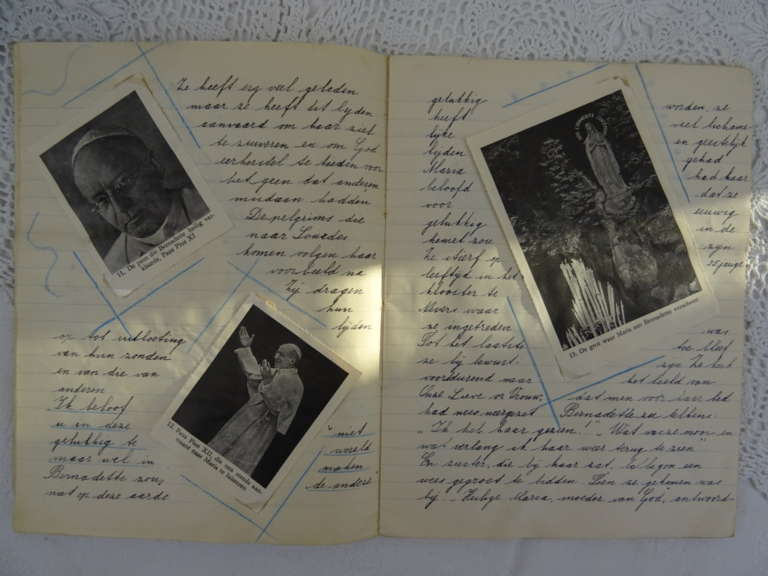 Ze heeft erg veel geleden
maar ze heeft dit lyden
aanvaard om haar ziel
te zuiveren en om God
eerherstel te bieden voor
het geen dat anderen
misdaan hadden
De pelgrims die
naar Lourdes
komen volgen haar
voorbeeld na
Zij dragen
hun
lyden
11. De paus die Bernadette heilig ver-
klaarde, Paus Pius XI
op tot uitboeting
van hun zonden
en van die van
anderen
Ik beloof
u in deze
gelukkig te
maar wel in
Bernadette zou
nat op deze aarde
12. Paus Pius XII, die ons steeds aan-
maant naar Maria te luisteren
"niet
wereld
maken
de andere"
gelukkig
heeft
lyke
lyden
Maria
beloofd
voor
gelukkig
hemel zou
Ze stierf op
leeftyd in het
klooster te
Nevers waar
ze ingetreden
Tot het laatste
ze bij bewust
voortdurend naar
Onze Lieve Vrouw,
had neergezet
13. De grot waar Maria aan Bernadette verscheen
worden, ze
veel lichame
en geestelijk
gehad
had haar
dat ze
eeuwig
in de
zyn
35 jarige
was
toe bleef
zyn Ze keek
het beeld van
dat men voor haar bed
Bernadette zei telkens:
"Ik heb haar gezien!" "Wat was ze mooi en
wat verlang ik haar weer terug te zien"
En zuster, die bij haar zat, begon een
wees gegroet te bidden Toen ze gekomen was
bij "Heilige Maria, moeder van God, antwoord-